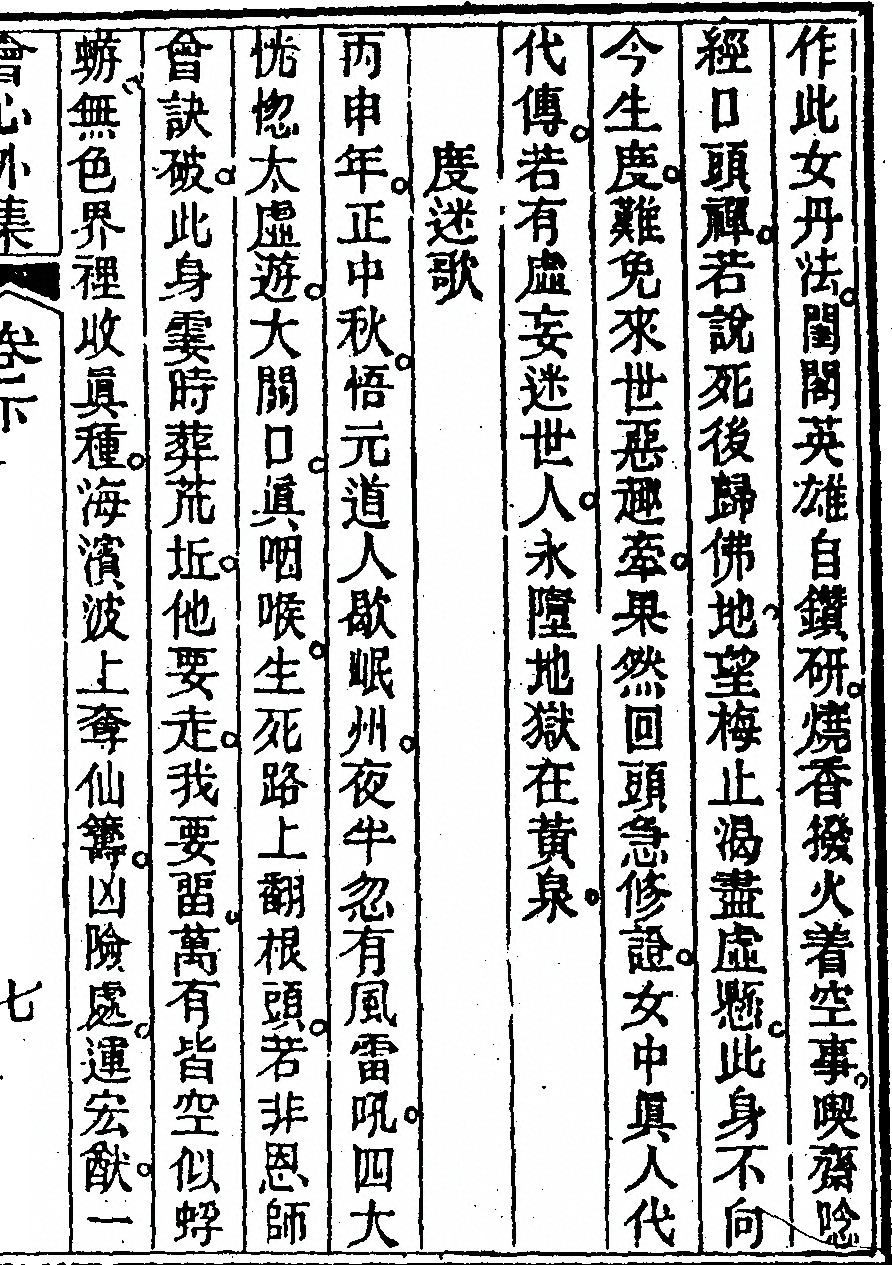 作此女丹法。閨閣英雄自鑽研。燒香撥火着空事。喫齋唸
經口頭禪。若說死後歸佛地。望梅止渴盡虛懸。此身不向
今生度。難免來世惡趣牽。果然回頭急修證。女中眞人代
代傳。若有虛妄迷世人。永墮地獄在黃泉。
度迷歌
丙申年。正中秋。悟元道人歇岷州。夜半忽有風雷吼。四大
恍惚太虛遊。大關口。眞咽喉。生死路上翻根頭。若非恩師
曾訣破。此身霎時葬荒坵。他要走。我要留。萬有皆空似蜉
蝣。無色界裡收眞種。海濱波上奪仙籌。凶險處。運宏猷。一
會心外集
卷下
七